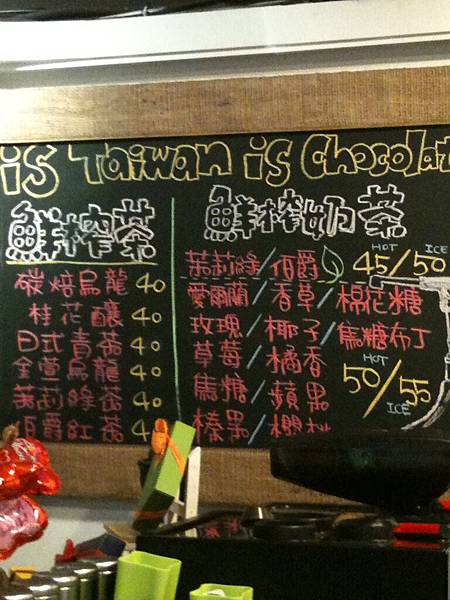 is Taiwan is Chocolat
鮮榨茶
碳焙烏龍 40
桂花釀 40
日式青茶 40
金萱烏龍 40
茉莉綠茶 40
伯爵紅茶 40
鮮榨奶茶
茉莉綠/伯爵 HOT 45/50 ICE
愛爾蘭/香草/棉花糖
玫瑰/椰子/焦糖布丁
草莓/橘香
焦糖/蘋果
榛果/櫻桃
HOT 50/55 ICE